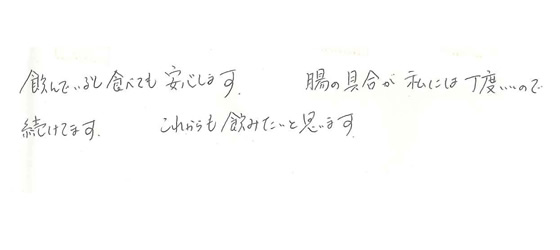 飲んでいると食べても安心します。 腸の具合が私には丁度いいので
続けてます。 これからも飲みたいと思います。